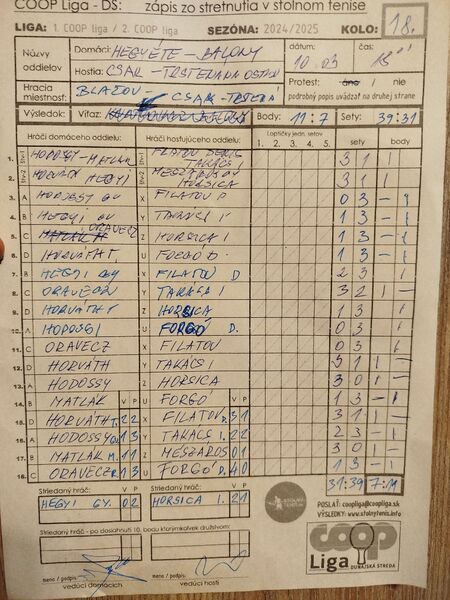 COOP Liga - DS: zápis zo stretnutia v stolnom tenise
LIGA: 1. COOP liga / 2. COOP liga SEZÓNA: 2024/2025 KOLO: 18.
Názvy oddielov
Domáci: HEGYÉTE - BALONY
dátum: 10.03
čas: 18:01
Hostia: CSAK - TRSTENÁ NA OSTROV
Protest: áno / nie
podrobný popis uvádzať na druhej strane
Hracia miestnosť: BLAZOV CSAK - TRSTENÁ
Výsledok: Víťaz: Body: 11:7 Sety: 39:31
Hráči domáceho oddielu: Hráči hosťujúceho oddielu: Loptičky jedn. setov sety body
1. 2. 3. 4. 5.
1. štv1 HODOSSY - MATLÁK štv1 TAKÁCS I 3 1 1
2. štv2 HORVÁTH HEGYI štv2 MESZÁROS HORSICA 3 1 1
3. A HODOSSY X FILATOV D 0 3 - 1
4. B HEGYI GY Y TAKÁCS I 1 3 - 1
5. C ORAVECZ Z HORSICA I 1 3 - 1
6. D HORVÁTH T. U FORGÓ D. 1 3 - 1
7. B HEGYI GY X FILATOV D 2 3 1
8. C ORAVECZ Y TAKÁCS I 3 2 1
9. D HORVÁTH T Z HORSICA 1 3 1
10. A HODOSSI U FORGÓ D. 0 3 1
11. C ORAVECZ X FILATOV 0 3 1
12. D HORVÁTH Y TAKÁCS I 3 1 1 -
13. A HODOSSY Z HORSICA 3 0 1 -
14. B MATLÁK V P U FORGÓ V P 1 3 - 1
15. D HORVÁTH T. 2 2 X FILATOV D. 3 1 3 1 1 -
16. A HODOSSY 1 3 Y TAKÁCS I. 2 2 2 3 - 1
17. B MATLÁK M. 1 1 Z MESZÁROS 0 1 3 0 1
18. C ORAVECZ R 1 3 U FORGÓ D. 4 0 1 3 - 1
Striedaný hráč: V P Striedaný hráč: V P 31:39 7:11
HEGYI GY. 0 2 HORSICA I. 2 1
Striedaný hráč - po dosiahnutí 10. bodu ktorýmkoľvek družstvom:
POSLAŤ: coopliga@coopliga.sk
VÝSLEDKY: www.stolnytenis.info
coop
Liga DUNAJSKÁ STREDA
meno / podpis
vedúci domácich
meno / podpis
vedúci hostí